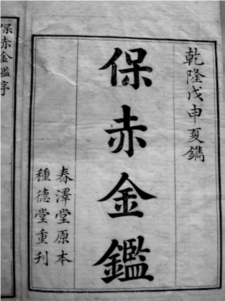 乾隆戊申夏鐫
保赤金鑑
春澤堂原本
種德堂重刊
保赤金鑑序